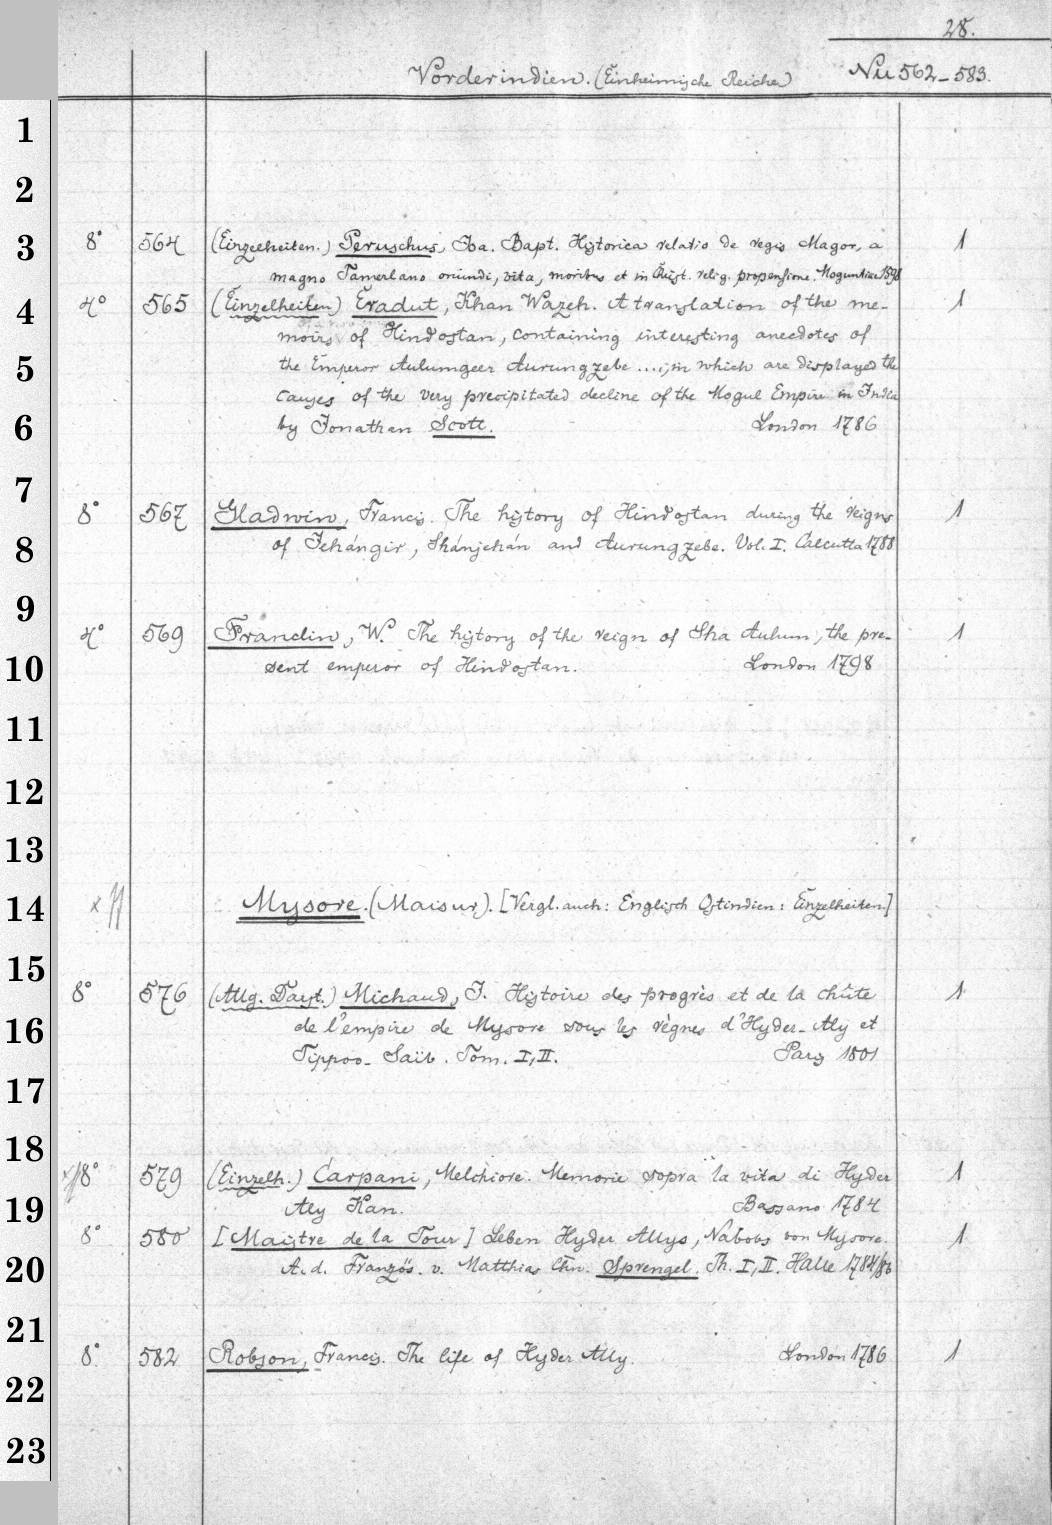 28.
Vorderindien. (Einheimische Reiche) Nu 562-583.
1
2
3 8° 564 (Einzelheiten.) Peruschus, Ioa. Bapt. Historica relatio de regis Magor, a 1
magno Tamerlano oriundi, vita, moribus et in Christ. relig. propensione. Moguntiae 1598
4 4° 565 (Einzelheiten) Eradut, Khan Wazeh. A translation of the me- 1
moirs of Hindostan, containing interesting anecdotes of
5 the Emperor Aulumgeer Aurungzebe ...; in which are displayed the
causes of the very precipitated decline of the Mogul Empire in India
6 by Jonathan Scott. London 1786
7 8° 567 Gladwin, Francis. The history of Hindostan during the reigns 1
8 of Jehángir, Shánjehán and Aurungzebe. Vol. I. Calcutta 1788
9 4° 569 Franclin, W. The history of the reign of Sha Aulum, the pre- 1
10 sent emperor of Hindostan. London 1798
11
12
13
14 Mysore. (Maisur). [Vergl. auch: Englisch Ostindien: Einzelheiten]
15 8° 576 (Allg. Darst.) Michaud, J. Histoire des progrès et de la chûte 1
16 de l'empire de Mysore sous les règnes d'Hyder-Aly et
Tippoo-Saib. Tom. I, II. Paris 1801
17
18 8° 579 (Einzelh.) Carpani, Melchiore. Memorie sopra la vita di Hyder 1
19 Aly Kan. Bassano 1784
8° 580 [Maistre de la Tour] Leben Hyder Allys, Nabobs von Mysore. 1
20 A. d. Französ. v. Matthias Chn. Sprengel. Th. I, II. Halle 1784/86
21 8° 582 Robson, Francis. The life of Hyder Ally. London 1786 1
22
23